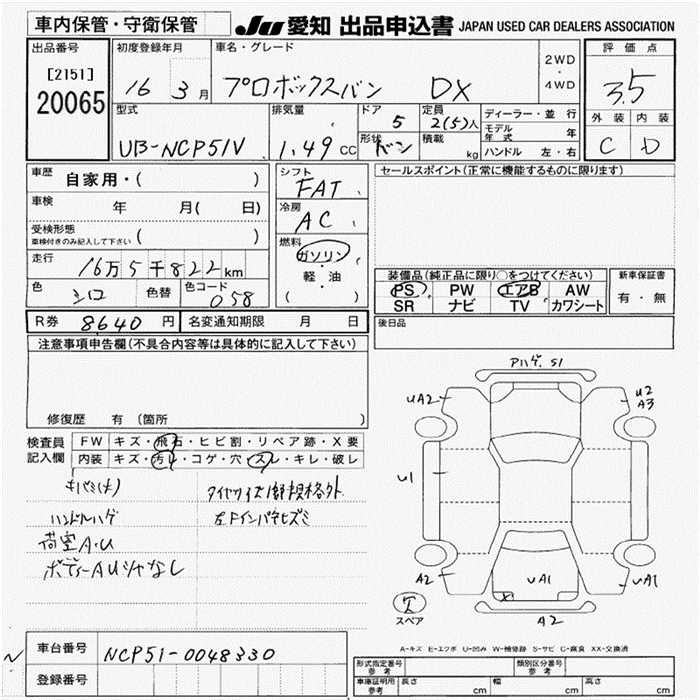 車内保管・守衛保管 JU 愛知 出品申込書 JAPAN USED CAR DEALERS ASSOCIATION
出品番号 初度登録年月 車名・グレード 評価点
[2151] 2WD・4WD
20065 16 3月 プロボックスバン DX 3.5
型式 排気量 ドア 5 定員 2(5)人 ディーラー・並行 外装 内装
モデル年式 年
UB-NCP51V 1.49 CC 形状 バン 積載 kg ハンドル 左・右 C D
車歴 自家用・( ) シフト FAT セールスポイント(正常に機能するものに限ります)
車検 年 月( 日) 冷房 AC
受検形態 車検付きのみ記入して下さい ( )
燃料 ガソリン
走行 16万5千822km 軽・油
( )
装備品(純正品に限り○をつけてください) 新車保証書
色 シロ 色替 色コード 058 PS PW エアB AW 有・無
SR ナビ TV カワシート
R券 8640円 名変通知期限 月 日 後日品
注意事項申告欄(不具合内容等は具体的に記入して下さい)
修復歴 有 (箇所 )
検査員 FW キズ・飛石・ヒビ割・リペア跡・X要
記入欄 内装 キズ・汚レ・コゲ・穴・スレ・キレ・破レ
タイヤサイズ1部規格外
ハンドルハゲ 左Fインパネヒズミ
荷室A・U
ボディーAU少々なし
アハゲ.S1
UA2 U2
A3
U1
A2 UA1 UA1
X
A2
スペア
A-キズ E-エクボ U-凹み W-補修跡 S-サビ C-腐食 XX-交換済
車台番号 NCP51-0048330
登録番号
型式指定番号 参考 類別区分番号 参考
車庫証明用 参考 長さ cm 幅 cm 高さ cm